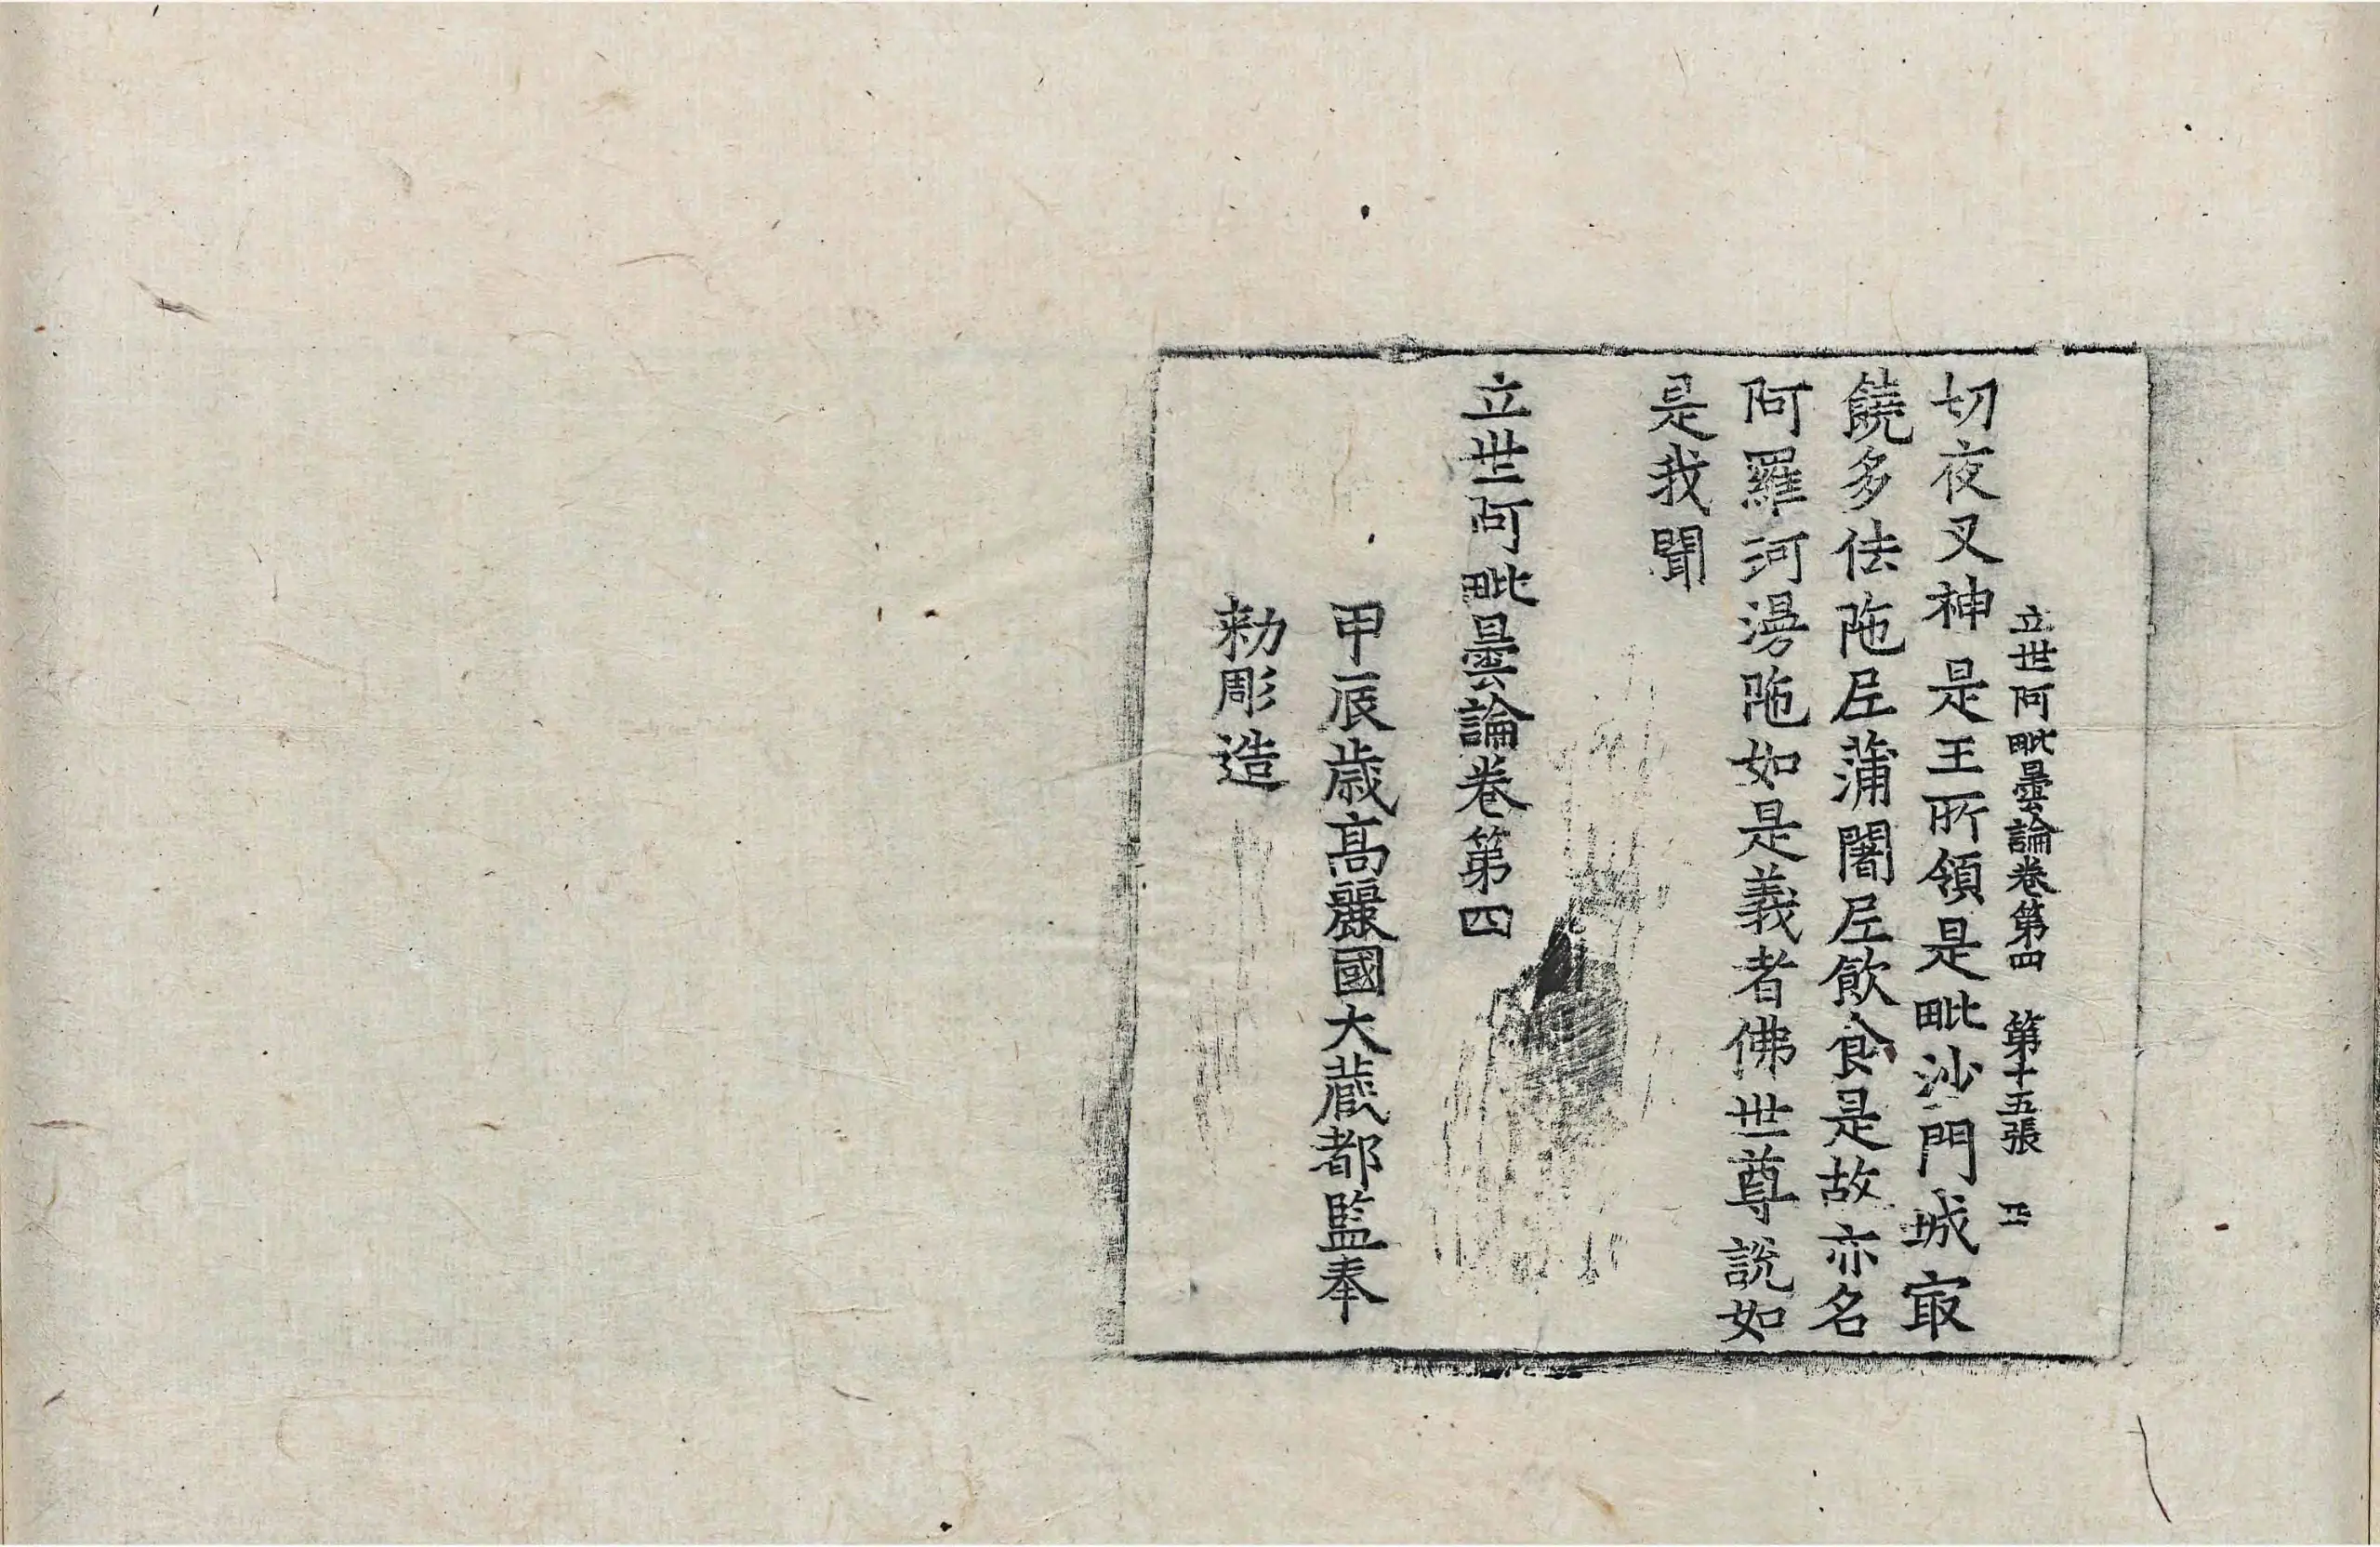 立世阿毗曇論卷第四　第十五張
切夜叉神是王所領是毗沙門城㝡
饒多佉陁𡰱蒲闍𡰱飲食是故亦名
阿羅河漫陁如是義者佛世尊說如
是我聞
立世阿毗曇論卷第四
甲辰歲高麗國大藏都監奉
勑彫造